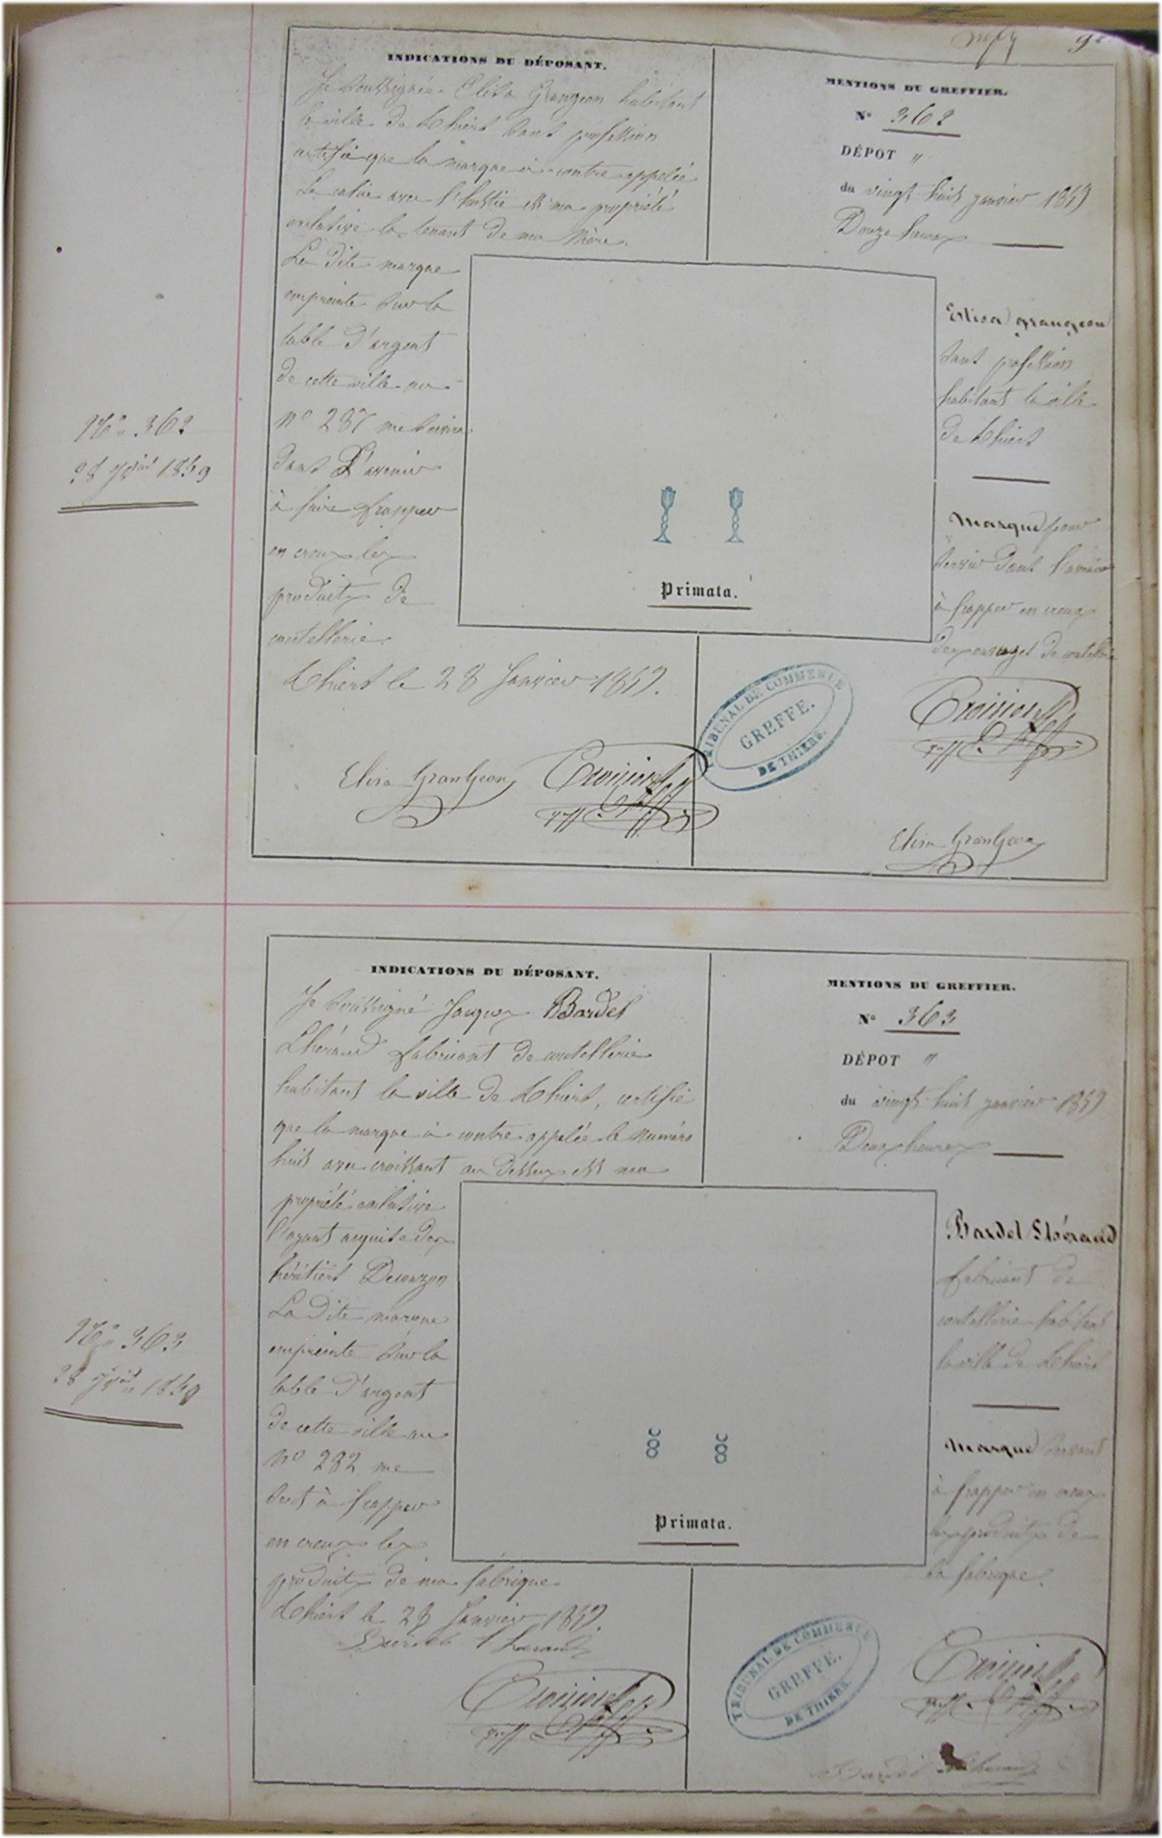 INDICATIONS DU DÉPOSANT.
Je soussignée Elisa Grangeon habitant
la ville de Thiers sans profession
certifie que la marque ci contre appelée
Le calice avec l'hostie est ma propriété
exclusive la tenant de ma Mère.
La dite marque
empreinte sur la
table d'argent
de cette ville au
n° 287 me servira
dans l'avenir
à faire frapper
en creux les
produits de
coutellerie.
Thiers le 28 Janvier 1859.
Elisa Grangeon
MENTIONS DU GREFFIER.
N° 362
DÉPOT "
du vingt huit janvier 1859
Douze heures
Elisa Grangeon
sans profession
habitant la ville
de Thiers
Marque pour
servir dans l'avenir
à frapper en creux
des ouvrages de coutellerie
Elisa Grangeon
Primata.
TRIBUNAL DE COMMERCE
GREFFE.
DE THIERS.
N° 362
28 Jer 1859
INDICATIONS DU DÉPOSANT.
Je soussigné Jacques Bardel
Lhéraud fabricant de coutellerie
habitant la ville de Thiers, certifie
que la marque ci contre appelée le numéro
huit avec croissant au dessus est ma
propriété exclusive
l'ayant acquise des
héritiers
La dite marque
empreinte sur la
table d'argent
de cette ville au
n° 282 me
sert à frapper
en creux les
produits de ma fabrique
Thiers le 28 Janvier 1859.
Bardel Lheraud
MENTIONS DU GREFFIER.
N° 363
DÉPOT "
du vingt huit janvier 1859
Deux heures
Bardel Lhéraud
fabricant de
coutellerie habitant
la ville de Thiers
Marque servant
à frapper en creux
les produits de
sa fabrique.
Bardel Lheraud
Primata.
TRIBUNAL DE COMMERCE
GREFFE.
DE THIERS.
N° 363
28 Jer 1859